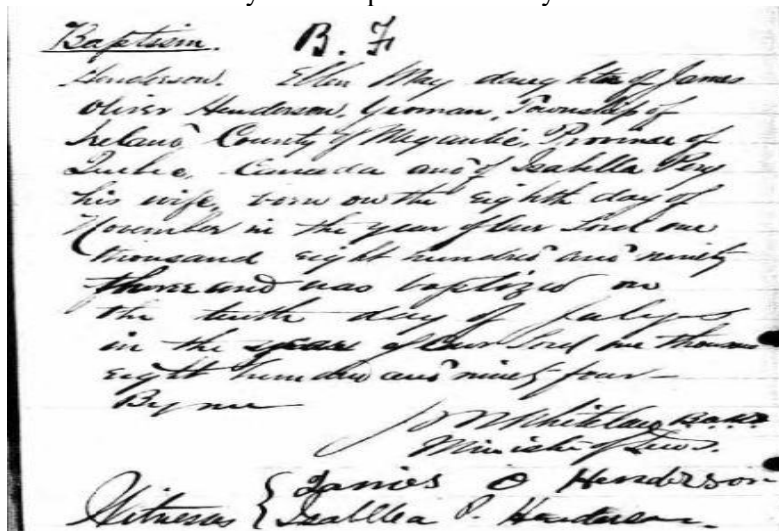 Baptism. B. F
Henderson. Ellen May daughter of James
Oliver Henderson, Yeoman, Township of
Ireland County of Megantic, Province of
Quebec, Canada and of Isabella Pery
his wife, born on the eighth day of
November in the year of our Lord one
thousand eight hundred and ninety
three and was baptized on
the tenth day of July
in the year of Our Lord one thousand
eight hundred and ninety four—
By me
Whitelaw
Minister
James O Henderson
Witnesses { Isabllea P. Henderson